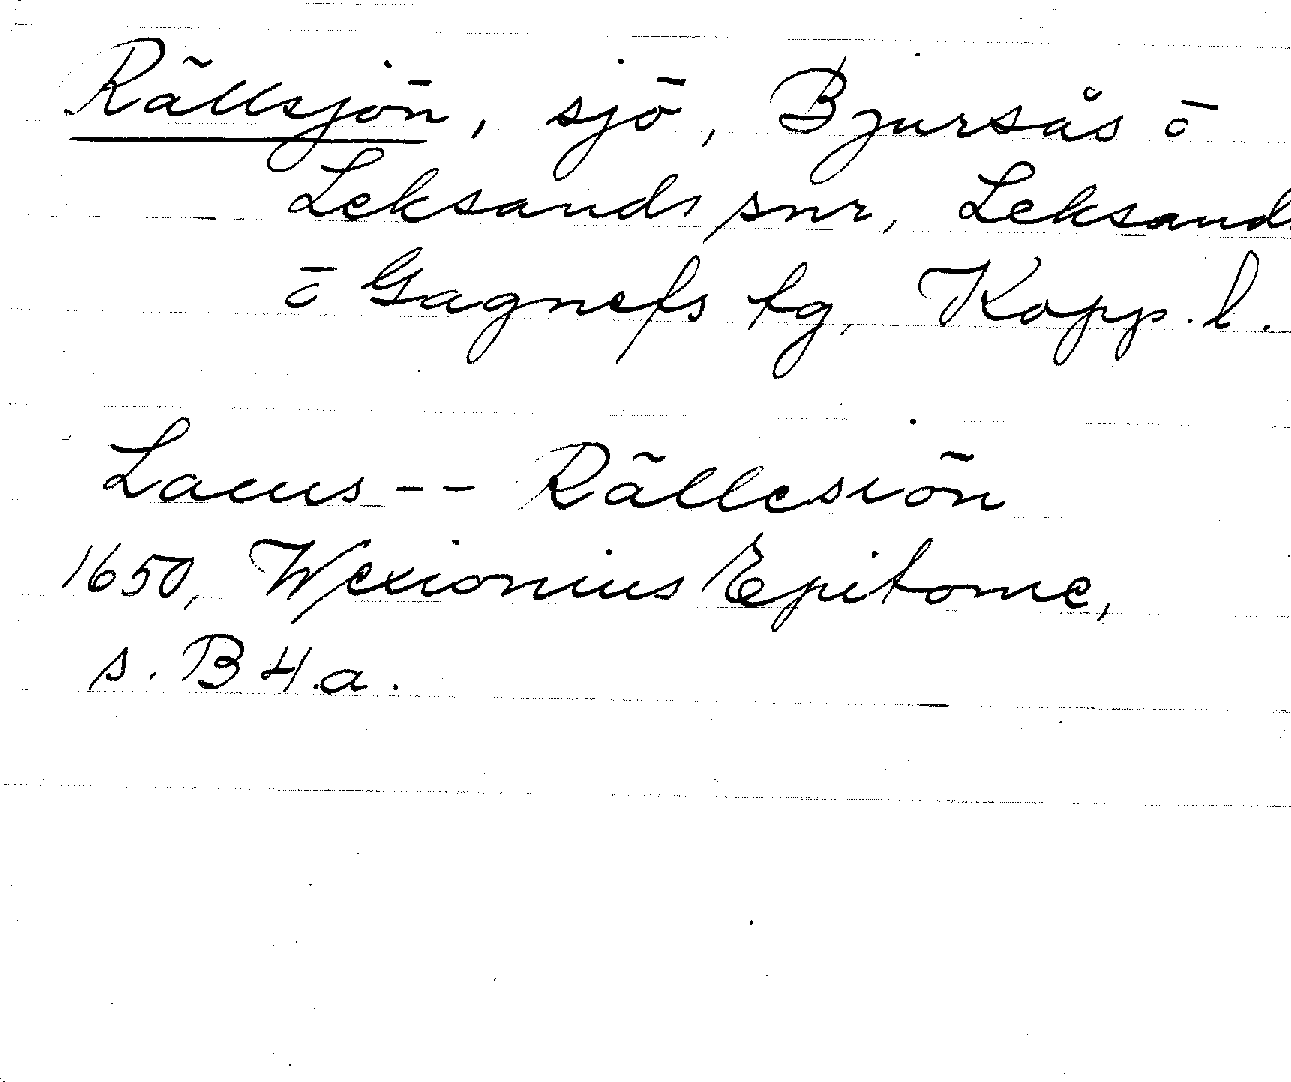 Rällsjön, sjö, Bjursås o
Leksands snr, Leksands
o Gagnefs tg, Kopp. l.
Lacus -- Rällesiön
1650, Wexionius Epitome,
s. B 4 a.